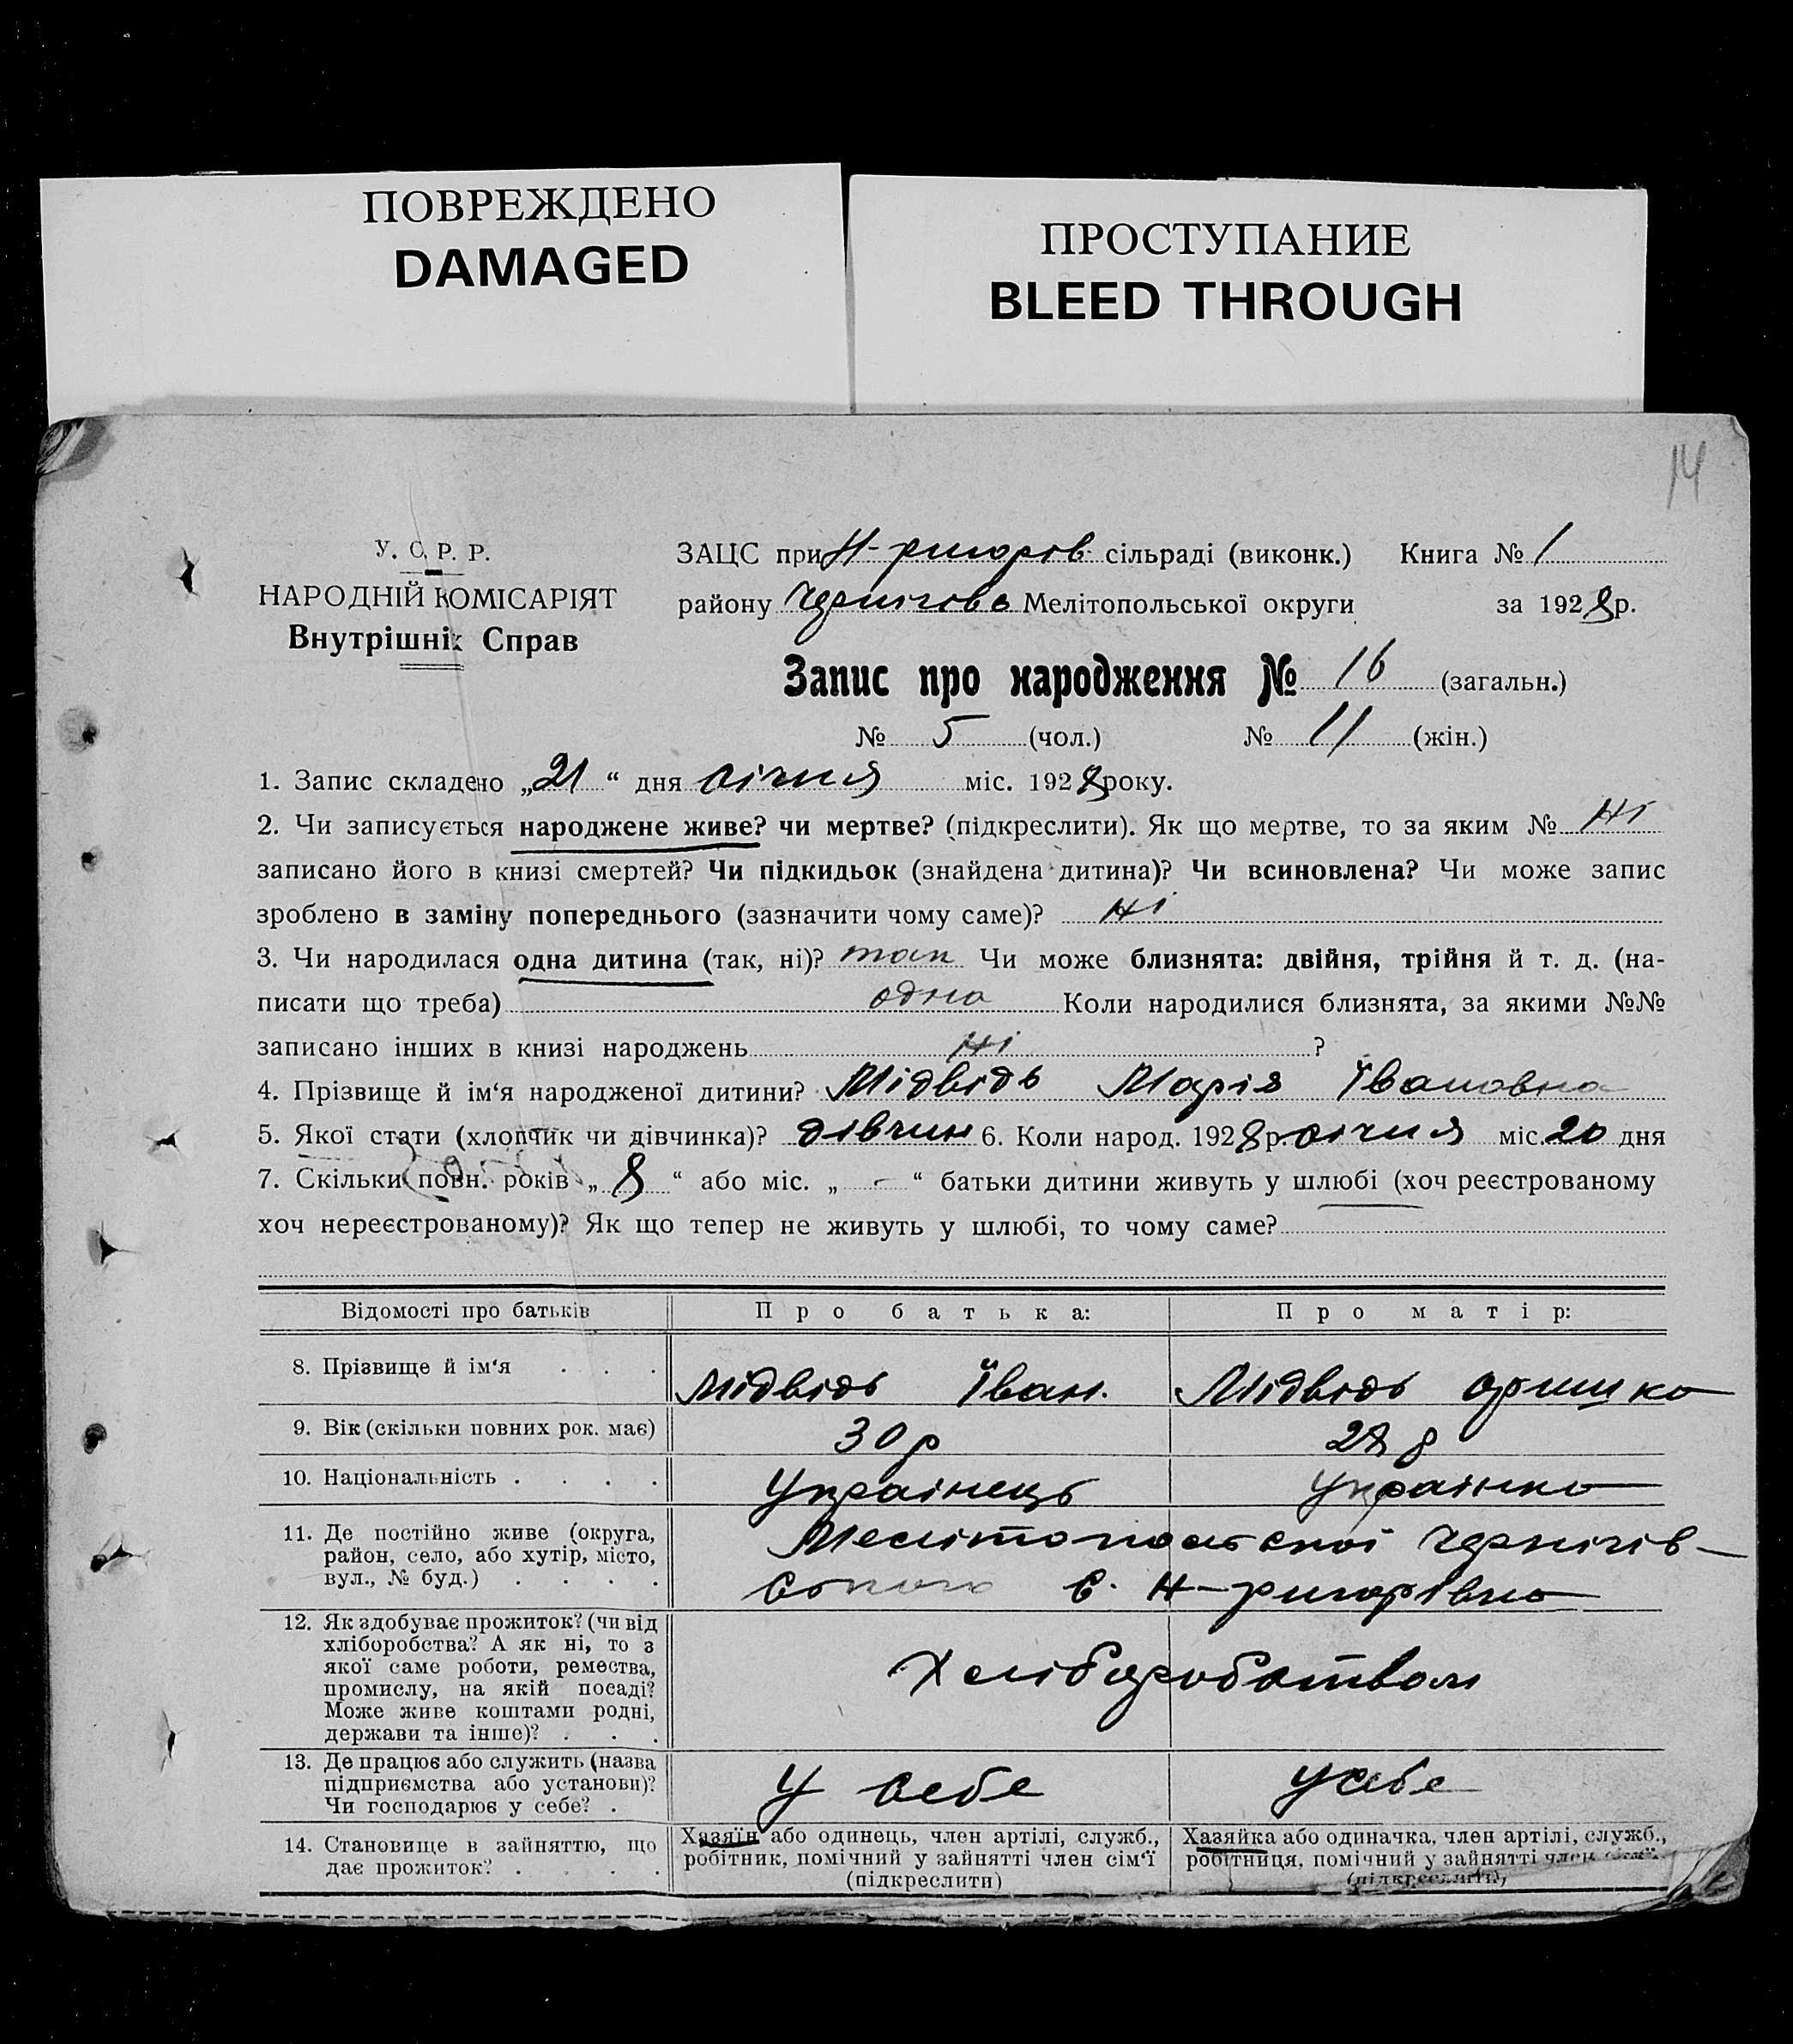 ПОВРЕЖДЕНО
DAMAGED
ПРОСТУПАНИЕ
BLEED THROUGH
14
У. С. Р. Р.
НАРОДНІЙ КОМІСАРІЯТ
Внутрішніх Справ
ЗАЦС при Н-ригорів сільраді (виконк.) Книга № 1
району Черніговс Мелітопольської округи за 1928 р.
Запис про народження № 16 (загальн.)
№ 5 (чол.) № 11 (жін.)
1. Запис складено „21“ дня січня міс. 1928 року.
2. Чи записується народжене живе? чи мертве? (підкреслити). Як що мертве, то за яким № ні
записано його в книзі смертей? Чи підкидьок (знайдена дитина)? Чи всиновлена? Чи може запис
зроблено в заміну попереднього (зазначити чому саме)? ні
3. Чи народилася одна дитина (так, ні)? так Чи може близнята: двійня, трійня й т. д. (на-
писати що треба) одна Коли народилися близнята, за якими №№
записано інших в книзі народжень ні ?
4. Прізвище й ім‘я народженої дитини? Мідвідь Марія Івановна
5. Якої стати (хлопчик чи дівчинка)? дівчин 6. Коли народ. 1928 р. січня міс. 20 дня
7. Скільки повн. років „8“ або міс. „-“ батьки дитини живуть у шлюбі (хоч реєстрованому
хоч нереєстрованому)? Як що тепер не живуть у шлюбі, то чому саме?
Відомості про батьків Про батька: Про матір:
8. Прізвище й ім‘я . . . Мідвідь Іван. Мідвідь Оришка
9. Вік (скільки повних рок. має) 30 р 28 р
10. Національність . . . . Українець Українка
11. Де постійно живе (округа,
район, село, або хутір, місто,
вул., № буд.) . . . .
Мелітопольскої Чернігів-
ського с. Н-ригорівка
12. Як здобуває прожиток? (чи від
хліборобства? А як ні, то з
якої саме роботи, ремества,
промислу, на якій посаді?
Може живе коштами родні,
держави та інше)? . . .
Хліборобством
13. Де працює або служить (назва
підприємства або установи)?
Чи господарює у себе? .
У себе У себе
14. Становище в зайняттю, що
дає прожиток? . . . .
Хазяїн або одинець, член артілі, служб.,
робітник, помічний у зайнятті член сім‘ї
(підкреслити)
Хазяйка або одиначка, член артілі, служб.,
робітниця, помічний у зайнятті член сім‘ї
(підкреслити)